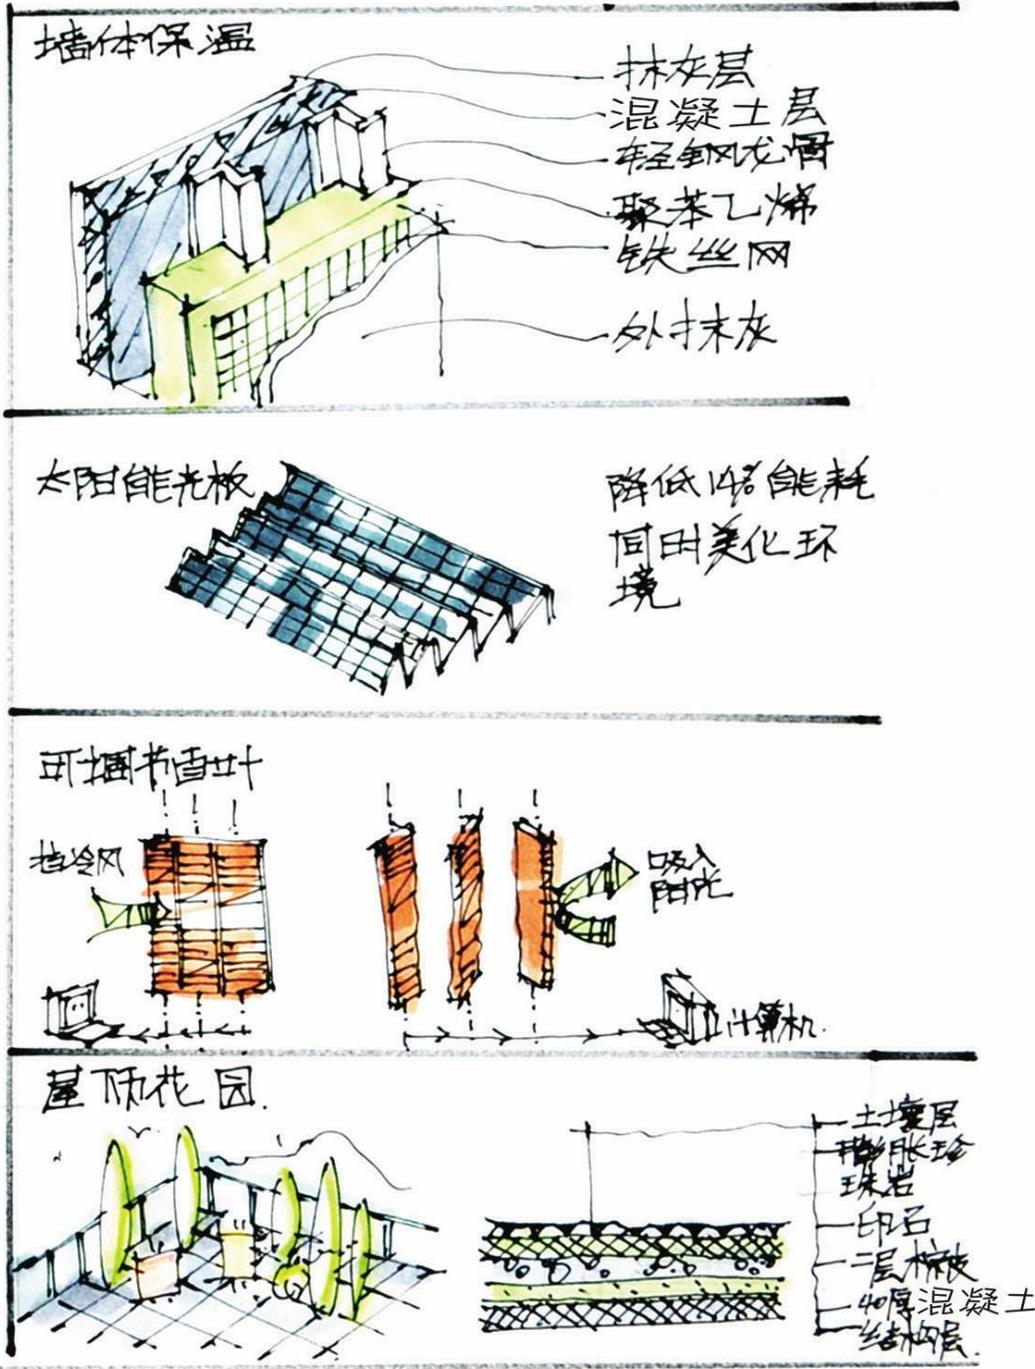 墙体保温
抹灰层
混凝土层
轻钢龙骨
聚苯乙烯
铁丝网
外抹灰
太阳能光板
降低14%能耗
同时美化环
境
可调节百叶
挡冷风
吸入
阳光
计算机.
屋顶花园.
土壤层
膨胀珍
珠岩
卵石
二层棕皮
40厚混凝土
结构层